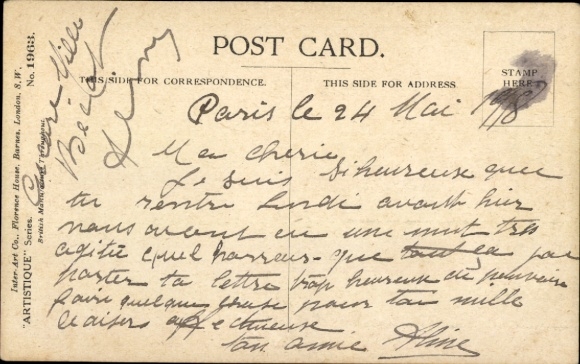 POST CARD.
THIS SIDE FOR CORRESPONDENCE.
THIS SIDE FOR ADDRESS
STAMP
HERE
Inter-Art Co., Florence House, Barnes, London, S.W.
"ARTISTIQUE" Series. No. 1963.
British Manufacture Throughout.
Paris le 24 Mai 1918
Ma cherie
Je suis si heureuse que
tu rentre Lundi avant hier
nous avont eu une nuit tres
agitée quel horreur - que tout ça
porter ta lettre trop heureuse de pouvoir
faire quelque chose pour toi mille
baisers affectueuse
ton amie Aline